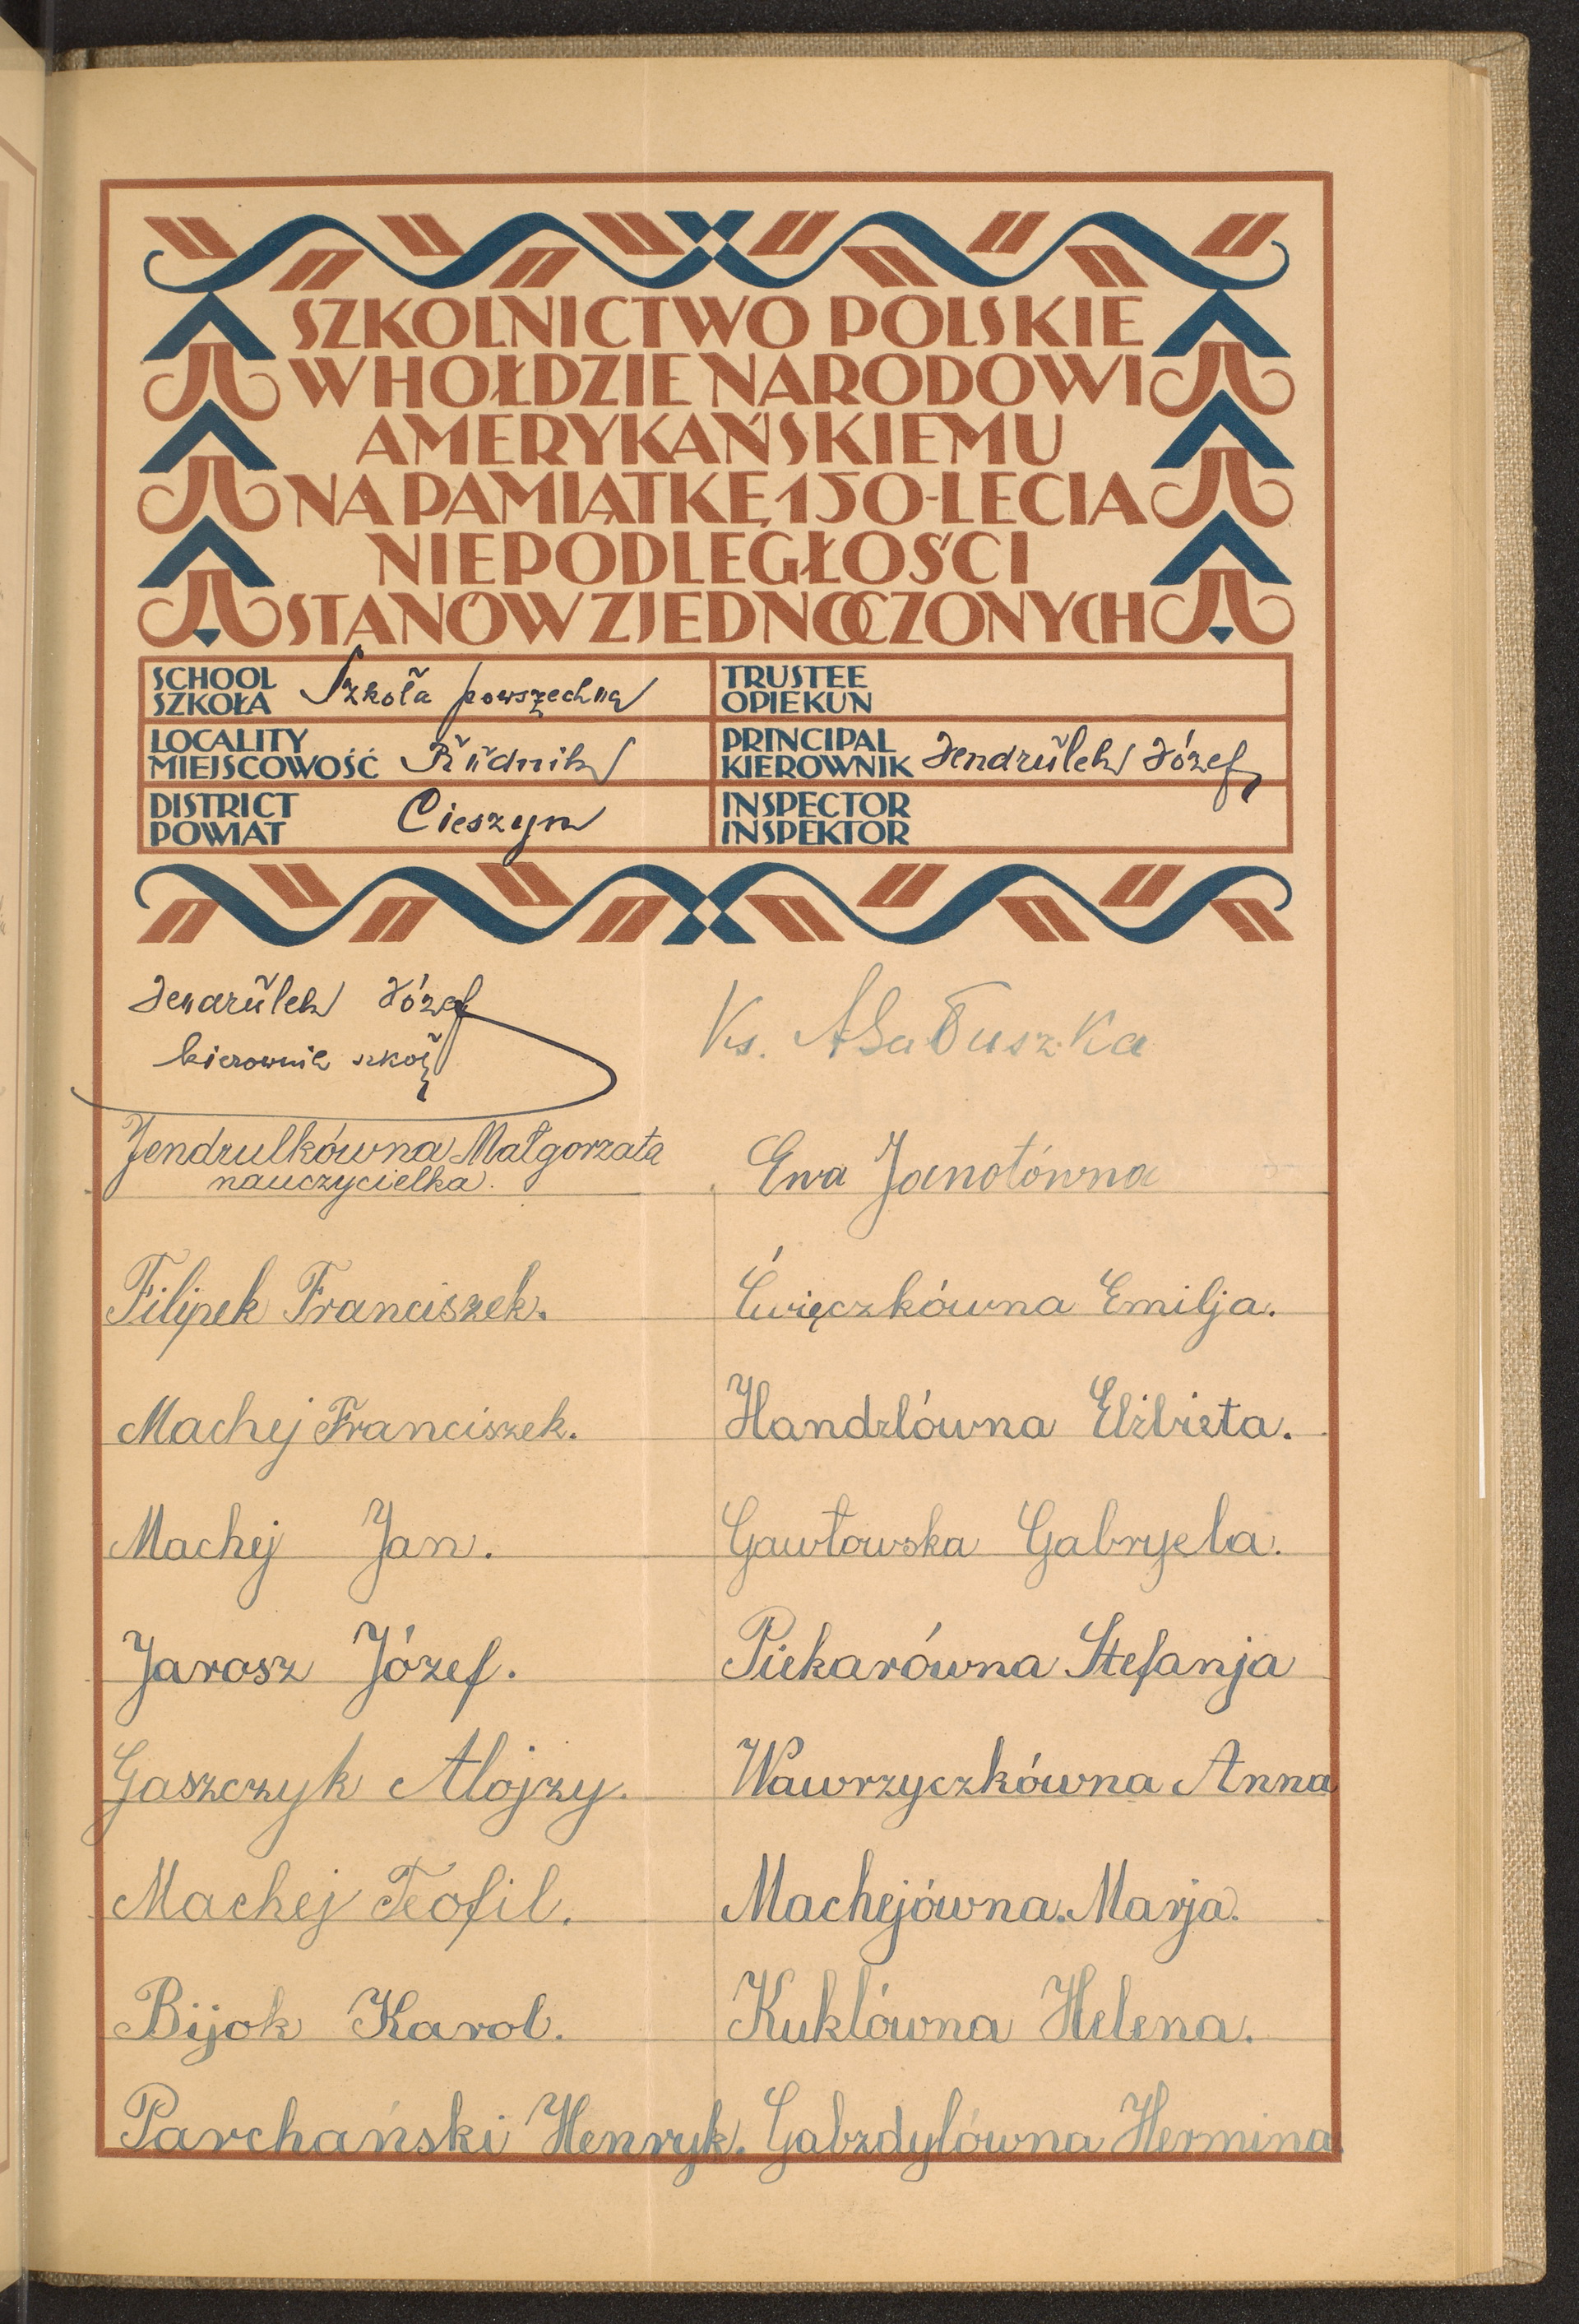 SZKOLNICTWO POLSKIE
W HOŁDZIE NARODOWI
AMERYKAŃSKIEMU
NA PAMIĄTKĘ 150-LECIA
NIEPODLEGŁOŚCI
STANÓW ZJEDNOCZONYCH
SCHOOL
SZKOŁA Szkoła powszechna
TRUSTEE
OPIEKUN
LOCALITY
MIEJSCOWOŚĆ Rudnik
PRINCIPAL
KIEROWNIK Jendrulek Józef
DISTRICT
POWIAT Cieszyn
INSPECTOR
INSPEKTOR
Jendrulek Józef
kierownik szkoły
Ks.
Jendrulkówna Małgorzata
nauczycielka.
Ewa Janotówna
Filipek Franciszek.
Ćwięczkówna Emilja.
Machej Franciszek.
Handzlówna Elżbieta.
Machej Jan.
Gawłowska Gabryela.
Jarosz Józef.
Piekarówna Stefanja
Gaszczyk Alojzy.
Wawrzyczkówna Anna
Machej Teofil.
Machejówna. Marja.
Bijok Karol.
Kuklówna Helena.
Parchański Henryk.
Gabzdylówna Hermina